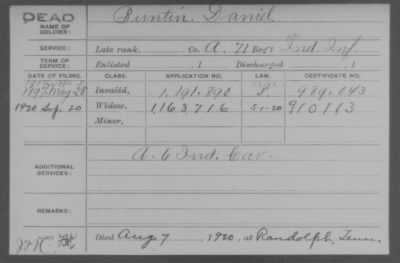 DEAD
NAME OF SOLDIER: Puntin, Daniel
SERVICE: Late rank, Co. A, 71 Reg't Ind. Inf.
TERM OF SERVICE: Enlisted , 1 Discharged , 1
DATE OF FILING. CLASS. APPLICATION NO. LAW. CERTIFICATE NO.
1897 May 28 Invalid, 1,191,890 989,043
1920 Sep. 20 Widow, 1,163,716 5-1-20 910113
Minor,
ADDITIONAL SERVICES: A. 6 Ind. Cav.
REMARKS:
Died Aug 7, 1920, at Randolph, Tenn.